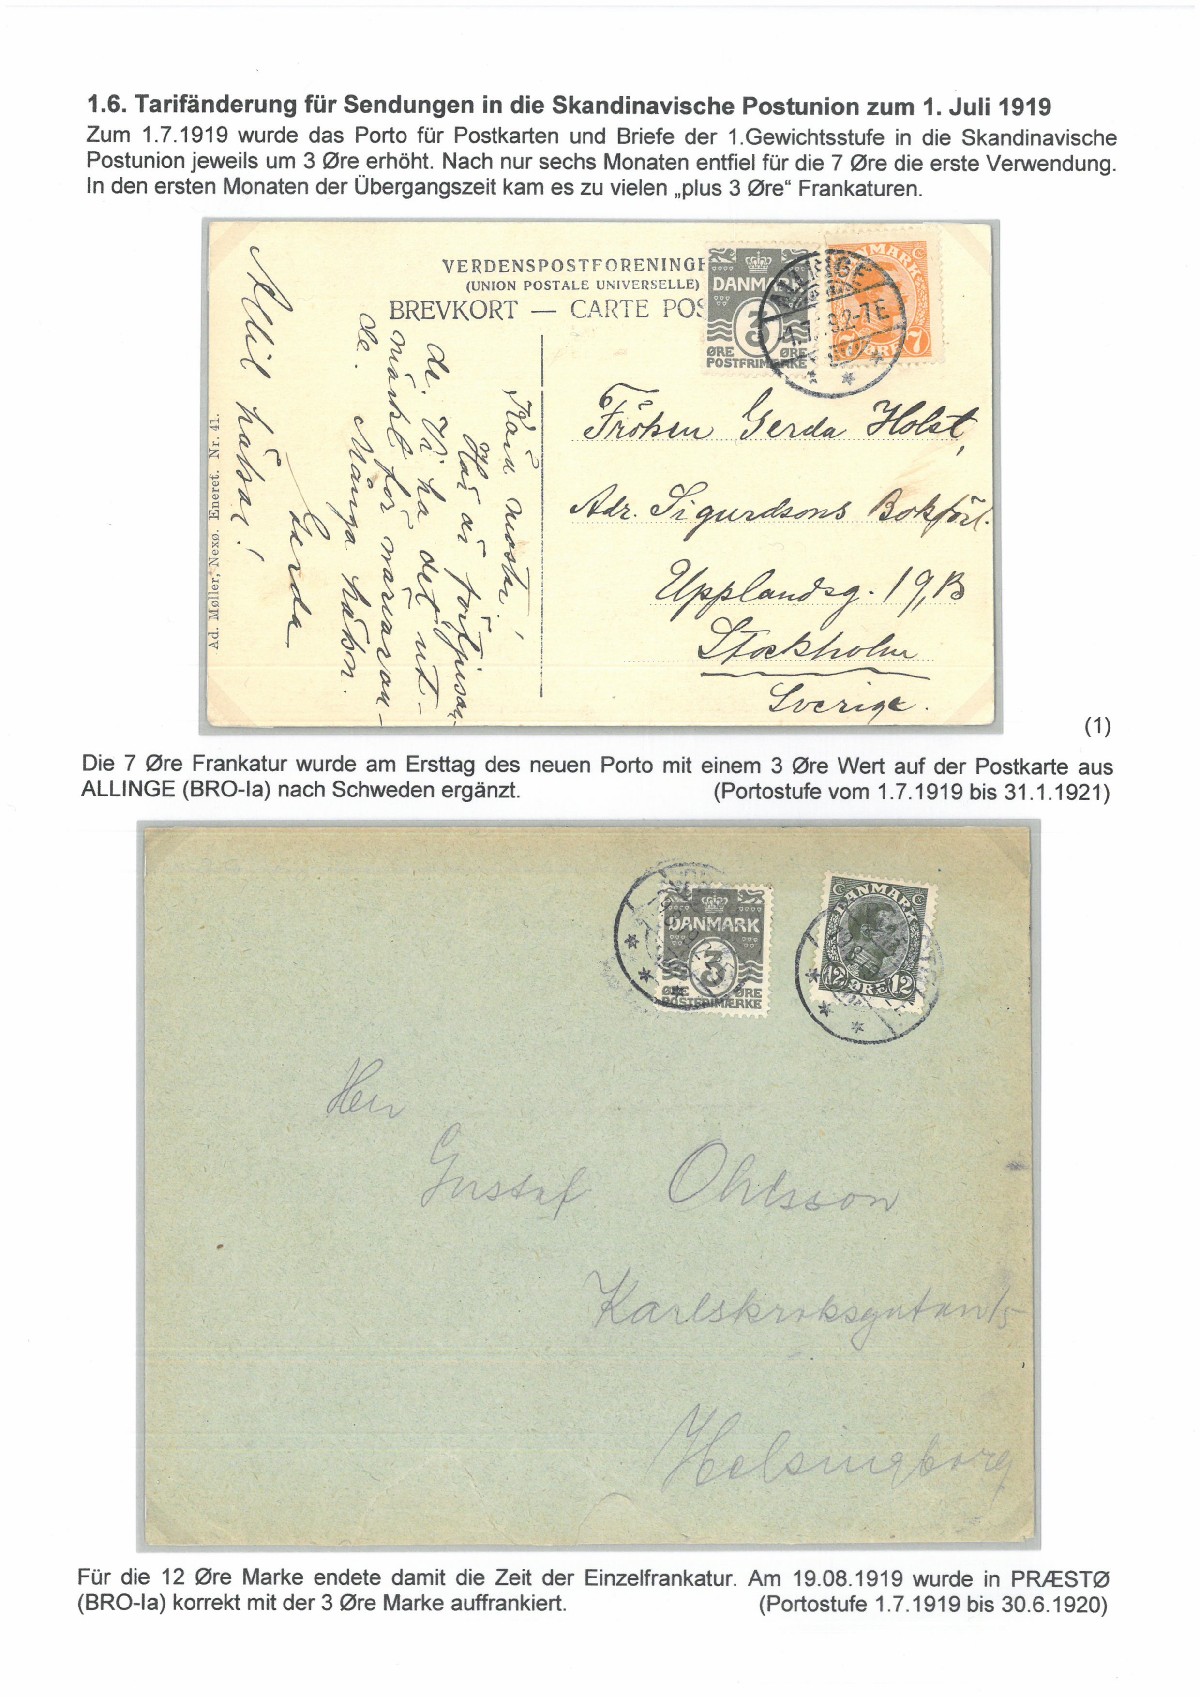 1.6. Tarifänderung für Sendungen in die Skandinavische Postunion zum 1. Juli 1919
Zum 1.7.1919 wurde das Porto für Postkarten und Briefe der 1.Gewichtsstufe in die Skandinavische
Postunion jeweils um 3 Øre erhöht. Nach nur sechs Monaten entfiel für die 7 Øre die erste Verwendung.
In den ersten Monaten der Übergangszeit kam es zu vielen „plus 3 Øre“ Frankaturen.
VERDENSPOSTFORENINGE
(UNION POSTALE UNIVERSELLE)
BREVKORT — CARTE POS
DANMARK
3
ØRE ØRE
POSTFRIMÆRKE
DANMARK
7 ØRE 7
ALLINGE
2-7E
Kära moster!
Här är förtjusan-
de. Vi ha det ut-
märkt för närvaran-
de. Många hälsn.
Gerda
Ad. Møller, Nexø. Eneret. Nr. 41.
Fröken Gerda Holst,
Adr. Sigurdsons Bokförl.
Upplandsg. 19,B
Stockholm
Sverige.
(1)
Die 7 Øre Frankatur wurde am Ersttag des neuen Porto mit einem 3 Øre Wert auf der Postkarte aus
ALLINGE (BRO-Ia) nach Schweden ergänzt. (Portostufe vom 1.7.1919 bis 31.1.1921)
DANMARK
3
ØRE ØRE
POSTFRIMÆRKE
C C
DANMARK
12 ØRE 12
Herr
Gustaf Ohlsson
Helsingborg
Für die 12 Øre Marke endete damit die Zeit der Einzelfrankatur. Am 19.08.1919 wurde in PRÆSTØ
(BRO-Ia) korrekt mit der 3 Øre Marke auffrankiert. (Portostufe 1.7.1919 bis 30.6.1920)